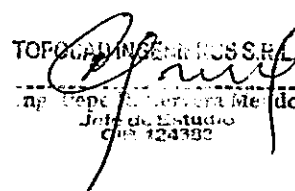 TOPOCAD INGENIEROS S.R.L
Ing. Pepe Herrera Mendo
Jefe de Estudio
CIP. 124382